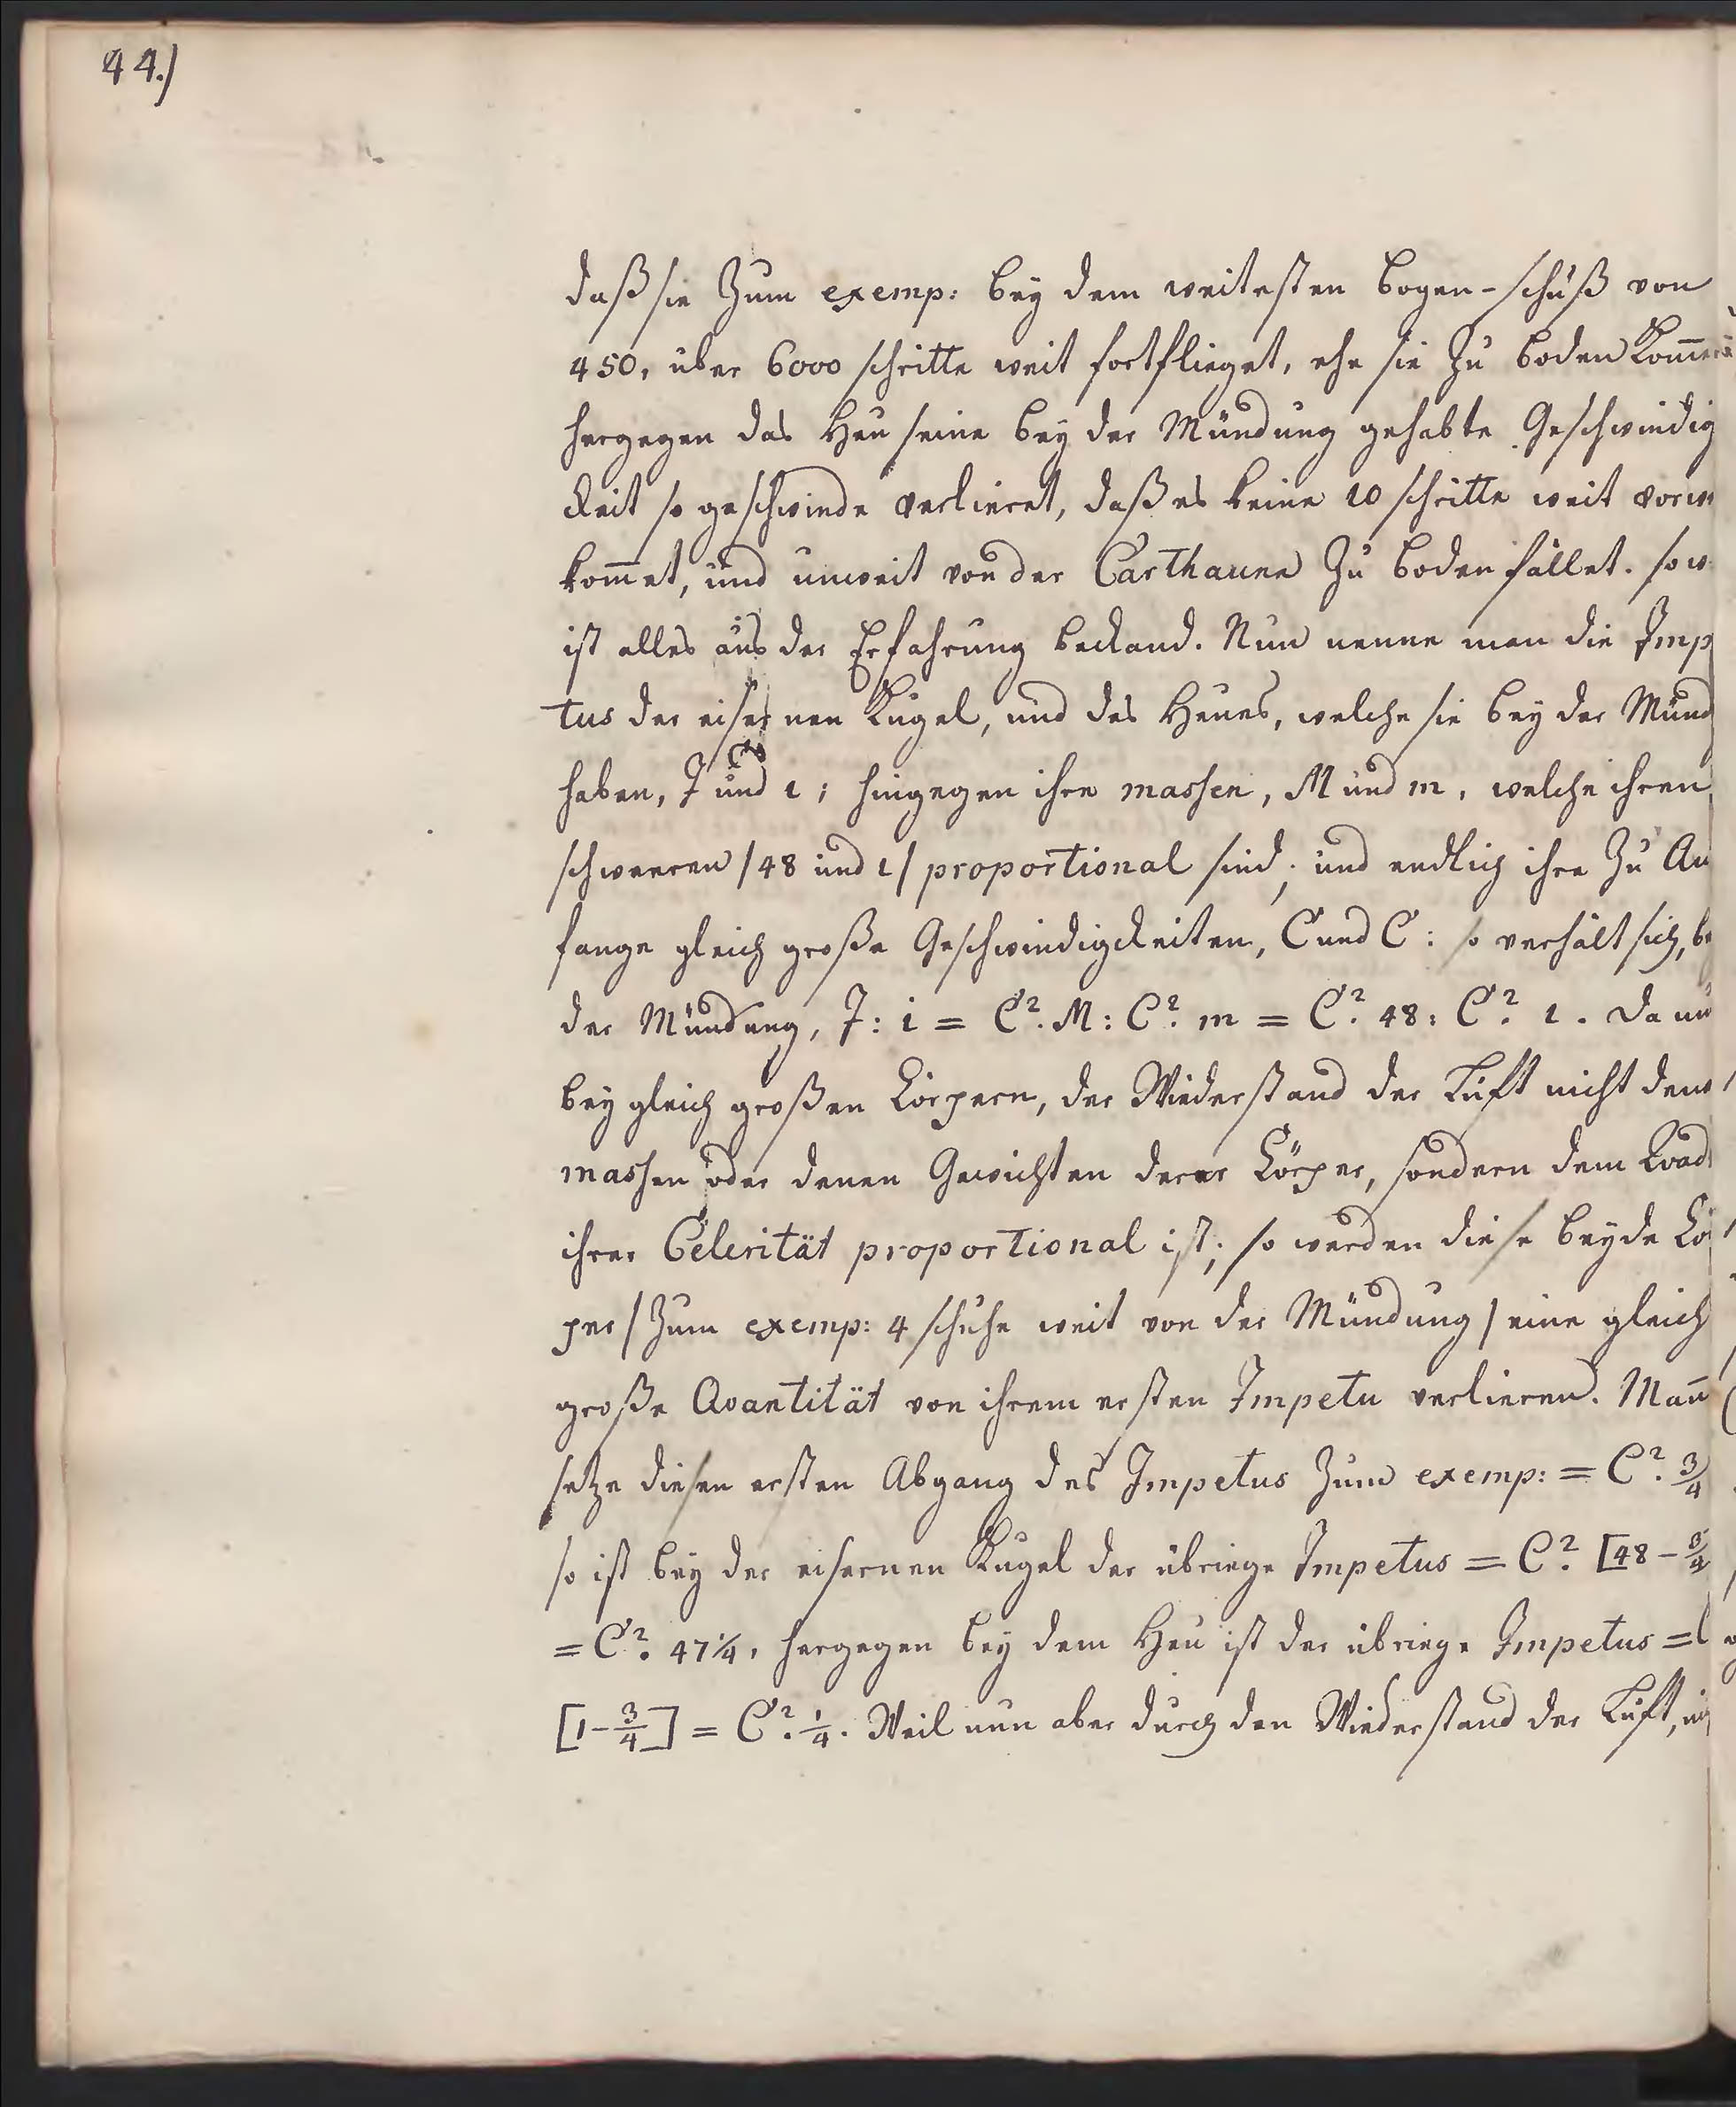 44.)
daß sie Zum exemp: bey dem weitesten bogen-schuß von
450, über 6000 schritte weit fortflieget, ehe sie zu boden
hergegen das Heu seine bey der Mündung gehabte Geschwindig
ckeit so geschwinde verlieret, daß es keine 10 schritte weit
kom̄et, und unweit von der Carthaune Zu boden fället. so
ist alles aus der Erfahrung beckand. Nun nenne man die Imp
tus der eisernen Kugel, und des Heues, welche sie bey der Münd
haben, I und i; hingegen ihre massen, M und m, welche ihren
schweeren /48 und 1/ proportional sind; und endlich ihre Zu An
fange gleich große Geschwindigckeiten, C und C: so verhält sich,
der Mündung, I: i = C². M: C². m = C². 48: C². 1. Da
bey gleich großen Cörpern, der Wiederstand der Luft nicht denen
massen oder denen Gewichten derer Cörper, sondern dem Qvad
ihrer Celerität proportional ist; so werden diese beyde Cö
per /Zum exemp: 4 schuhe weit von der Mündung/ eine gleich
große Qvantität von ihrem ersten Impetu verlieren. Man̄
setze diesen ersten Abgang des Impetus Zum exemp: = C². 3/4
so ist bey der eisernen Kugel der übriege Impetus = C². [48 - 3/4
= C². 47 1/4, hergegen bey dem Heu ist der übriege Impetus =
[1 - 3/4] = C². 1/4. Weil nun aber durch den Wiederstand der Luft,